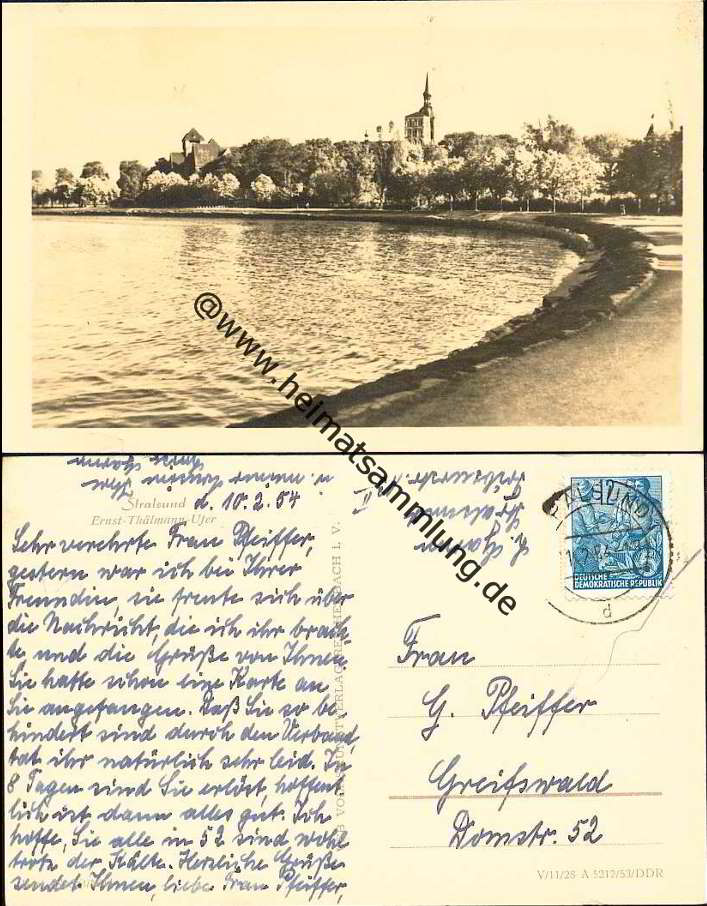 @www.heimatsammlung.de
Stralsund
Ernst-Thälmann-Ufer
d. 10.2.54
Sehr verehrte Frau Pfeiffer,
gestern war ich bei Ihrer
Freundin, sie freute sich über
die Nachricht, die ich ihr brach-
te und die Grüße von Ihnen.
Sie hatte schon eine Karte an
Sie angefangen. Daß Sie so be-
hindert sind durch den Verband,
tat ihr natürlich sehr leid. In
8 Tagen sind Sie erlöst, hoffent-
lich ist dann alles gut. Ich
hoffe, Sie alle in 52 sind wohl
trotz der Kälte. Herzliche Grüße
sendet Ihnen, liebe Frau Pfeiffer,
u.
Stralsund
STRALSUND
DEUTSCHE
DEMOKRATISCHE REPUBLIK
d
Frau
G. Pfeiffer
Greifswald
Domstr. 52
V/11/28 A 5212/53/DDR